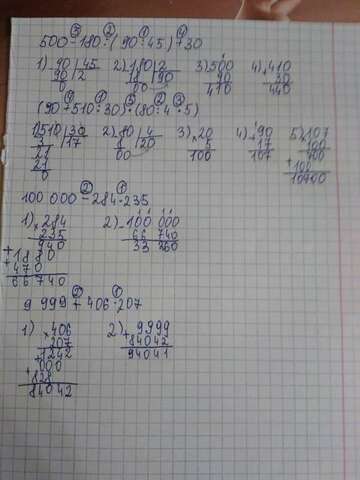 500 - 180 : (90 : 45) + 30
1) 90 | 45 2) 180 | 2 3) 500 4) + 410
90 | 2 18 | 90 90 30
0 00 410 440
(90 + 510 : 30) · (80 : 4 · 5)
1) 510 | 30 2) 80 | 4 3) × 20 4) + 90 5) × 107
3 | 17 8 | 20 5 17 100
21 00 100 107 000
21
0 10700
100 000 - 284 · 235
1) × 284 2) - 100 000
235 66 740
940 33 260
+ 1880
+ 470
66740
9 999 + 406 · 207
1) × 406 2) + 9999
207 84042
1242 94041
+ 000
+ 828
84042